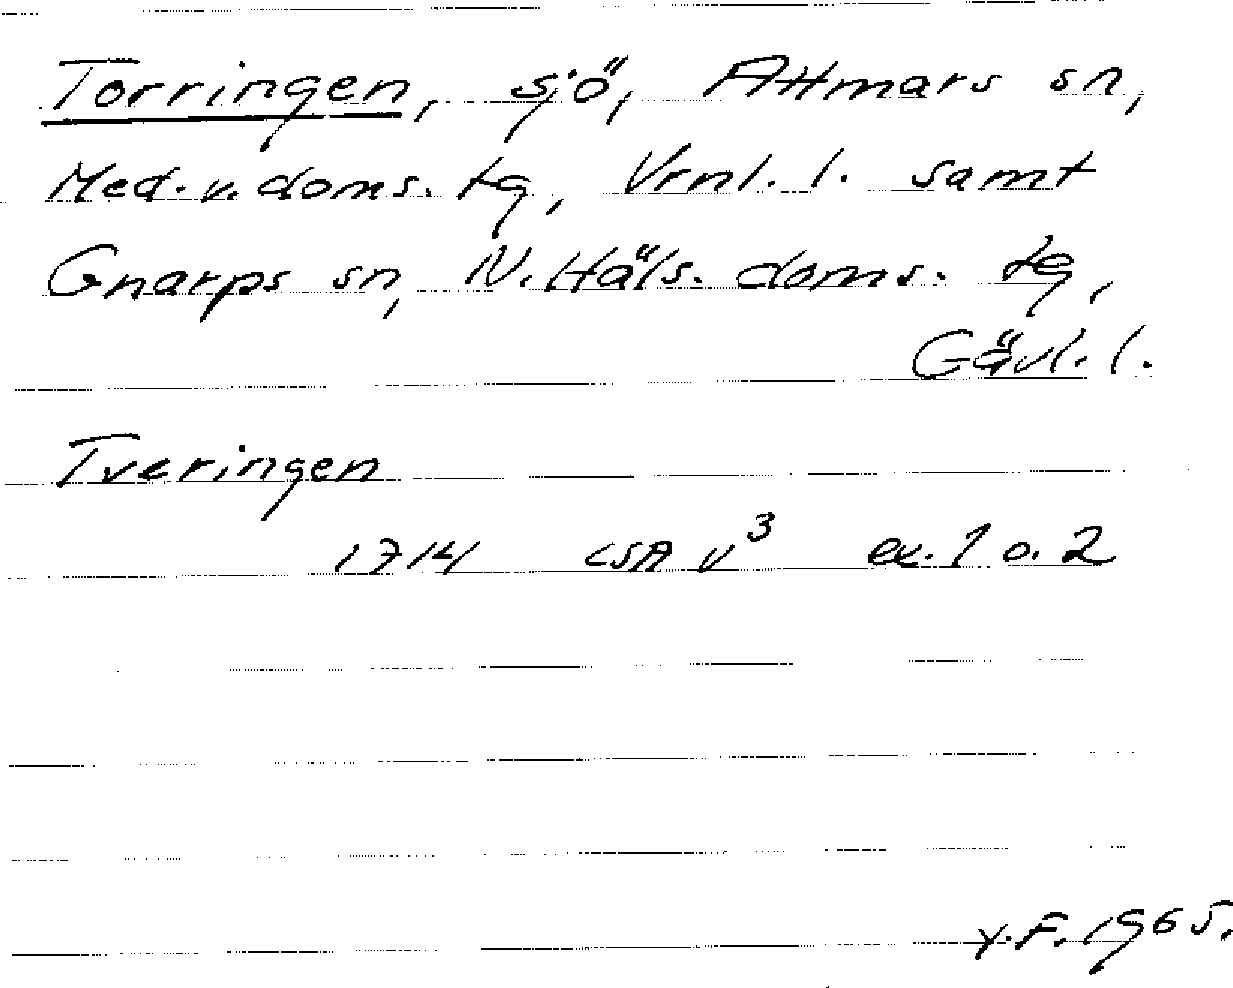 Torringen, sjö, Attmars sn,
Med. v. doms. tg, Vrnl. l. samt
Gnarps sn, N. Häls. doms. tg,
Gävl. l.
Tveringen
1714 LSA v³ ex. 1 o. 2
Y.F. 1965.